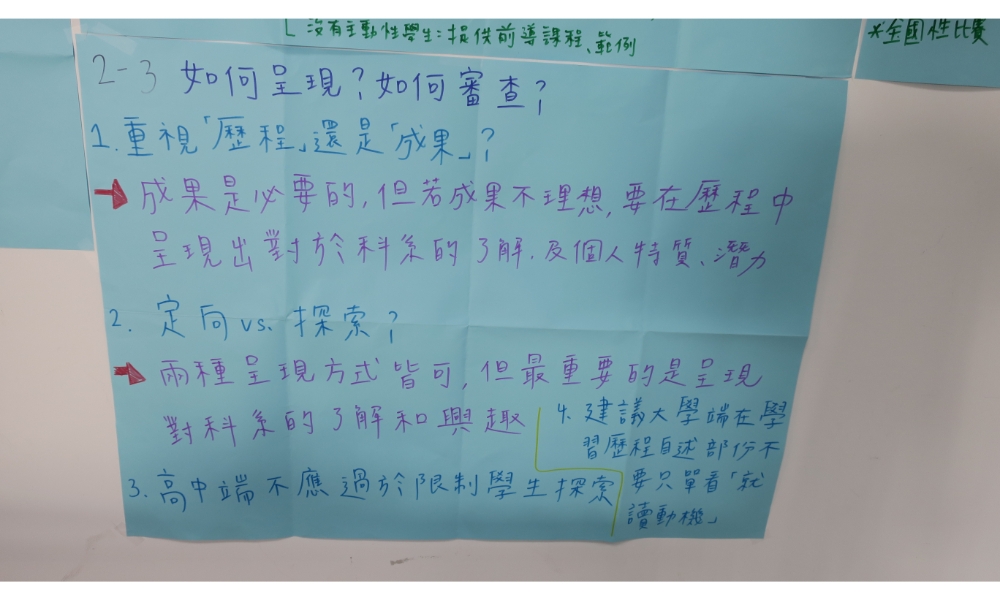 沒有主動性學生：提供前導課程、範例
*全國性比賽
2-3 如何呈現？如何審查？
1.重視「歷程」還是「成果」？
→ 成果是必要的，但若成果不理想，要在歷程中
呈現出對於科系的了解．及個人特質、潛力
2. 定向 vs. 探索？
→ 兩種呈現方式皆可，但最重要的是呈現
對科系的了解和興趣
3. 高中端不應過於限制學生探索
4. 建議大學端在學
習歷程自述部份不
要只單看「就
讀動機」